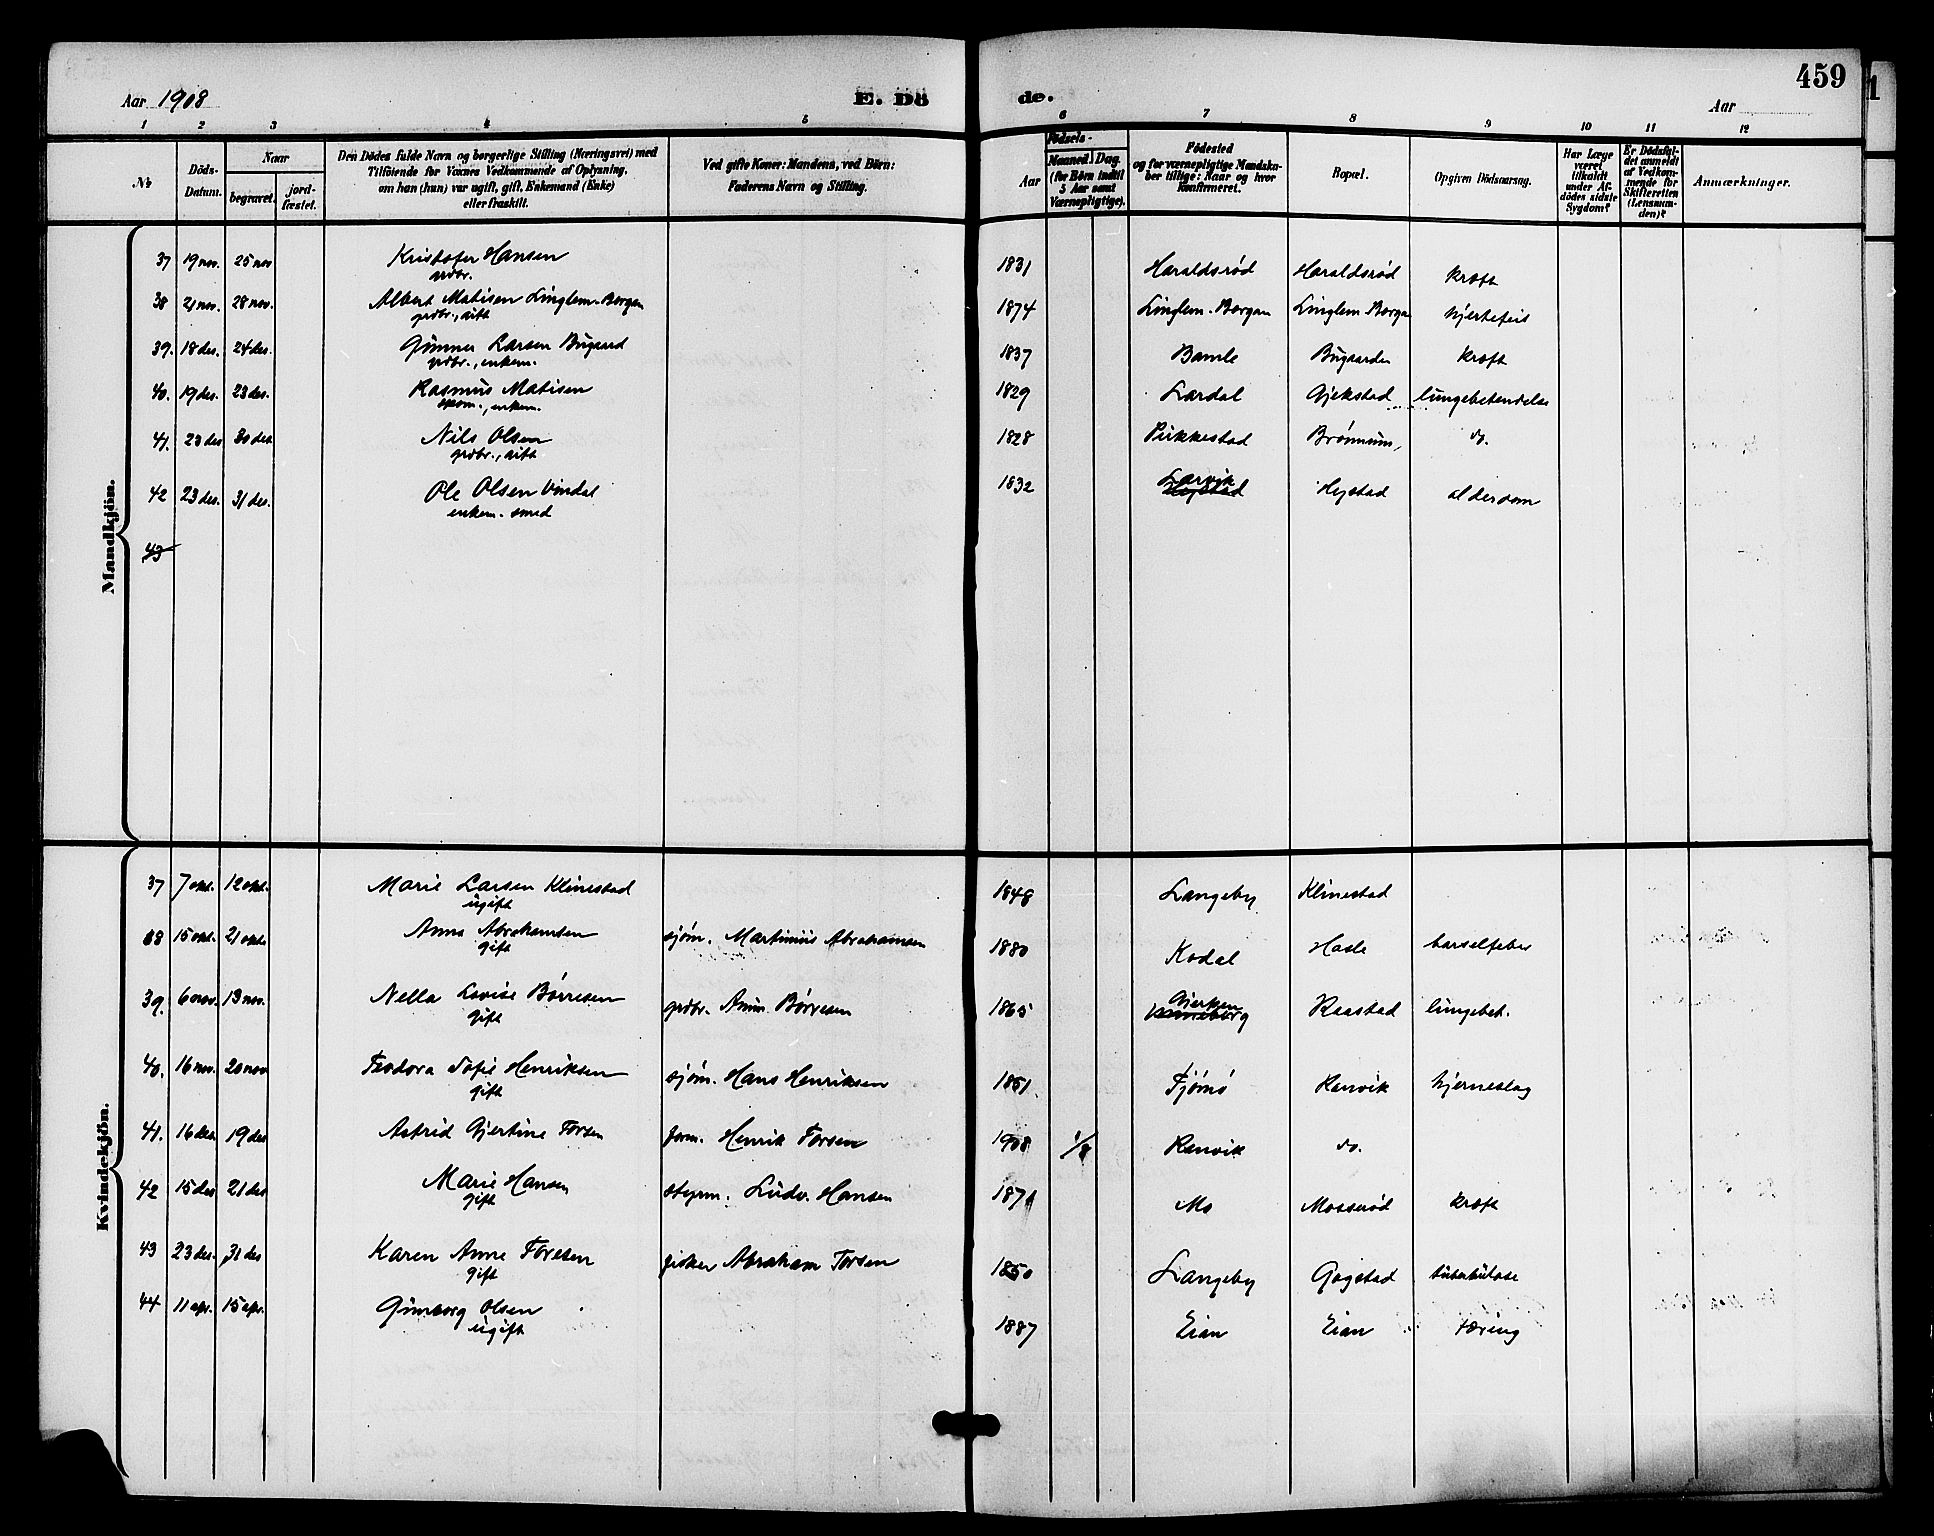 459
Aar 1908 E. Dö de. Aar
1 2 3 4 5 6 7 8 9 10 11 12
No
Döds-Datum.
Naar
begravet.
jordfæstet.
Den Dödes fulde Navn og borgerlige Stilling (Næringsvei) med
Tilföiende for Voxnes Vedkommende af Oplysning,
om han (hun) var ugift, gift, Enkemand (Enke)
eller fraskilt.
Ved gifte Koner: Mandens, ved Börn:
Faderens Navn og Stilling.
Födsels-
Aar
Maaned. Dag.
(for Börn indtil
5 Aar samt
Værnepligtige).
Födested
og for værnepligtige Mandska-
ber tillige: Naar og hvor
konfirmeret.
Bopæl.
Opgiven Dödsaarsag.
Har Læge
været
tilkaldt
under Af-
dödes sidste
Sygdom?
Er Dödsfal-
det anmeldt
af Vedkom-
mende for
Skifteretten
(Lensman-
den)?
Anmærkninger.
Mandkjön.
37 19 nov. 25 nov Kristofer Hansen 1831 Haraldsrød Haraldsrød kræft
grdbr.
38 21 nov. 28 nov. Albert Matisen Linglem-Borgan 1874 Linglem-Borgan Linglem Borgan hjertefeil
grdbr., gift
39. 18 des. 24 des. Gunner Larsen Bugaard 1837 Bamle Bugaarden kræft
grdbr., enkem.
40. 19 des. 23 des. Rasmus Matisen 1829 Lardal Gjekstad lungebetendelse
enkem.
41. 23 des 30 des Nils Olsen 1828 Pukkestad Brønnum, do.
grdbr., gift
42 23 des. 31 des. Ole Olsen Vindal 1832 Larvik Hystad alderdom
enkem. smed
43
Kvindekjön.
37 7 okt. 12 okt. Marie Larsen Klinestad 1848 Langeby Klinestad
ugift
38 15 okt. 21 okt. Anna Abrahamsen sjøm. Martinius Abrahamsen 1880 Kodal Hasle barselfeber
gift
39. 6 nov. 13 nov. Nella Lovise Børresen grdbr. Anun Børresen 1865 Gjerpen Raastad lungebet.
gift
40. 16 nov. 20 nov Teodora Sofie Henriksen sjøm. Hans Henriksen 1851 Tjømø Ranvik hjerneslag
gift
41. 16 des. 19 des Astrid Gjertine Torsen form. Henrik Torsen 1908 1/8 Ranvik do.
42 15 des 21 des Marie Hansen styrm. Ludv. Hansen 1871 Mo Mosserød kræft
gift
43 23 des. 31 des Karen Anne Toresen fisker Abraham Torsen 1850 Langeby Gogstad tuberkulose
gift
44 11 apr. 15 apr. Gunborg Olsen 1887 Eian Eian tæring
ugift